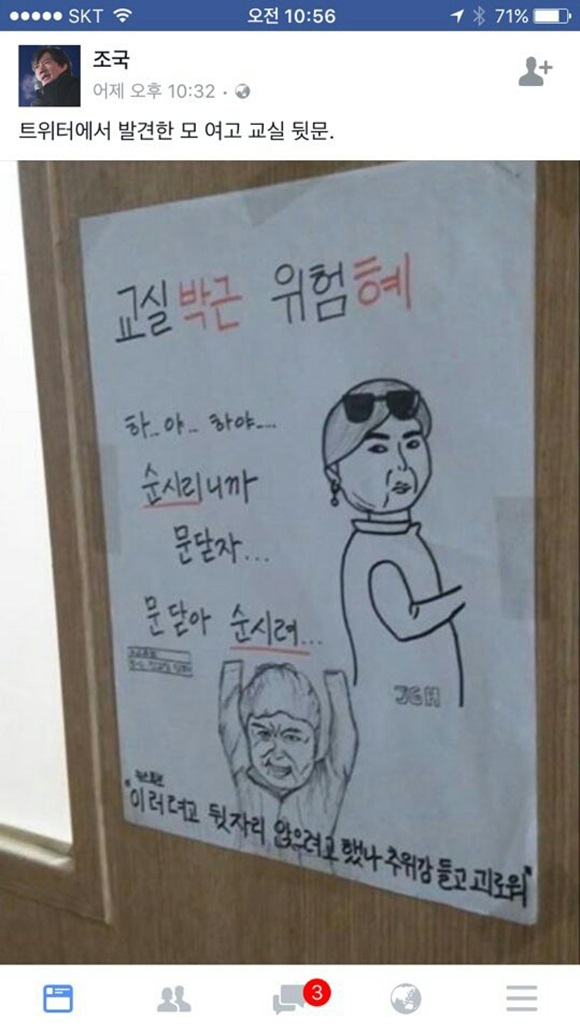 SKT
오전 10:56
71%
조국
어제 오후 10:32 ·
트위터에서 발견한 모 여고 교실 뒷문.
교실박근 위험혜
하.. 야.. 하야....
순시리니까
문닫자...
문 닫아 순시려...
JGH
"이러려고 뒷자리 앉으려고 했나 추위감 들고 괴로워"
3